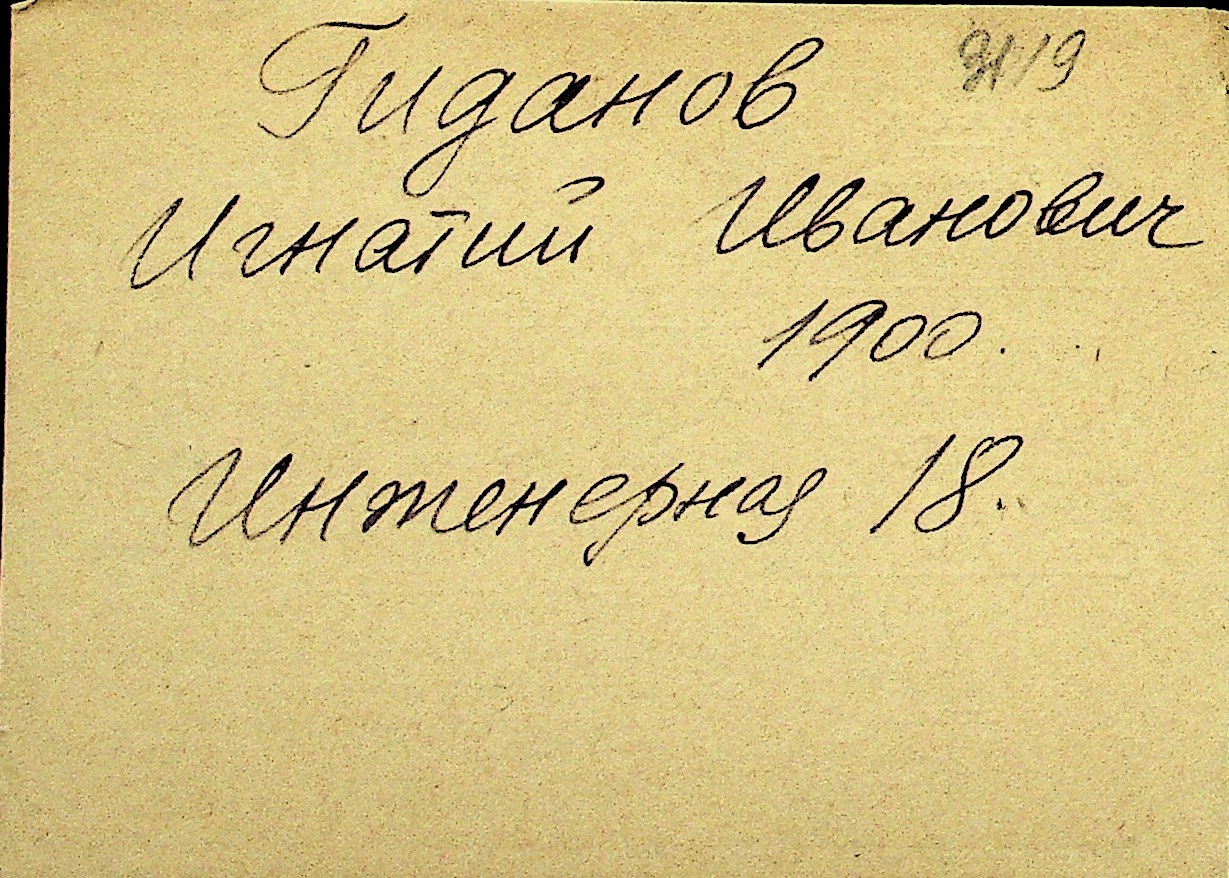 Гиданов
Игнатий Иванович
1900.
Инженерная 18.